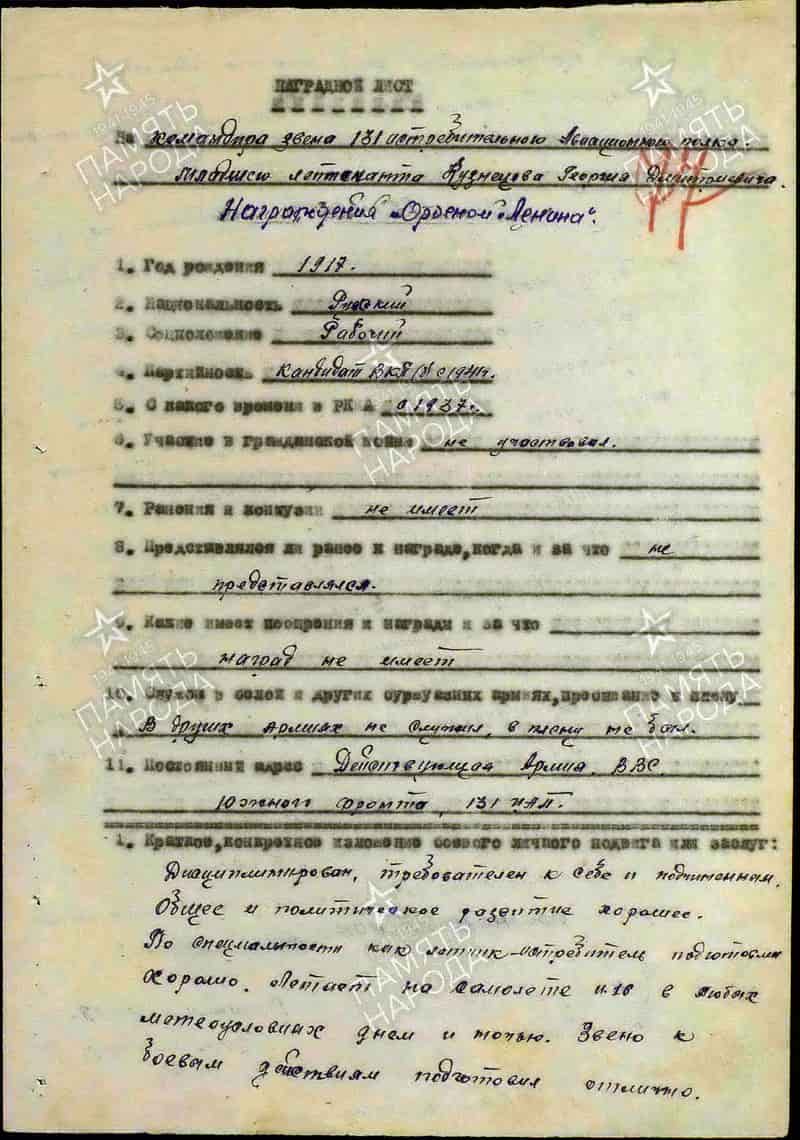 НАГРАДНОЙ ЛИСТ
На командира звена 131 истребительного Авиационного полка.
младшего лейтенанта Кузнецова Георгия Дмитриевича.
Награждения „Орденом „Ленина“.
1. Год рождения 1917.
2. Национальность Русский
3. Соцположение Рабочий
4. Партийность Кандидат ВКП(б) с 1941г.
5. С какого времени в РККА с 1937г.
6. Участие в гражданской войне не участвовал.
7. Ранения и контузии не имеет
8. Представлялся ли ранее к награде,когда и за что не
представлялся.
9. Какие имеет поощрения и награды и за что
наград не имеет
10. Служба в белой и других буржуазных армиях,пребывание в плену
В других армиях не служил, в плену не был.
11. Постоянный адрес Действующая Армия. ВВС.
Южного фронта, 131 ИАП.
1. Краткое,конкретное изложение боевого личного подвига или заслуг:
Дисциплинирован, требователен к себе и подчиненным.
Общее и политическое развитие хорошее.
По специальности как летчик-истребитель подготовлен
хорошо. Летает на самолете И-16 в любых
метеоусловиях днем и ночью. Звено к
боевым действиям подготовил отлично.
ПАМЯТЬ НАРОДА
1941-1945